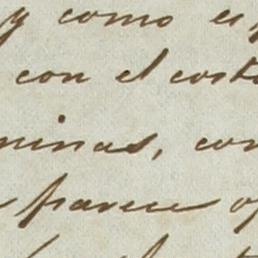 y como es
con el costo
minas, con
parece